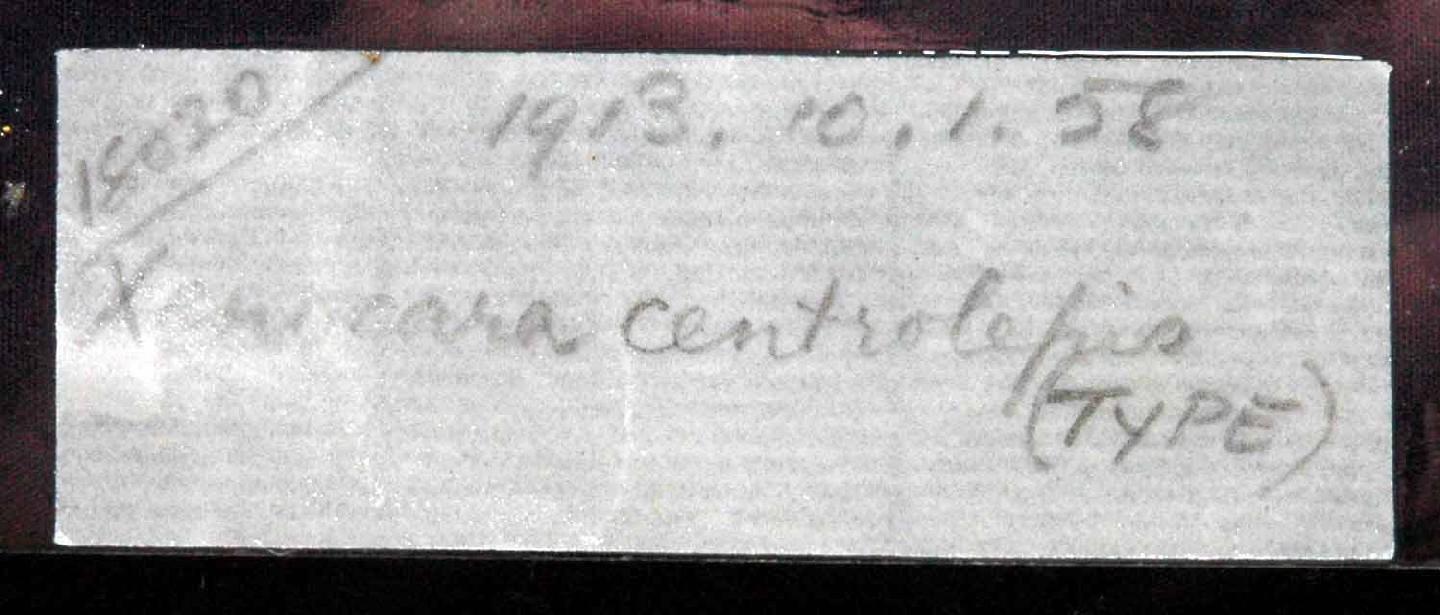 1913. 10. 1. 58
Xenocara centrolepis
(TYPE)